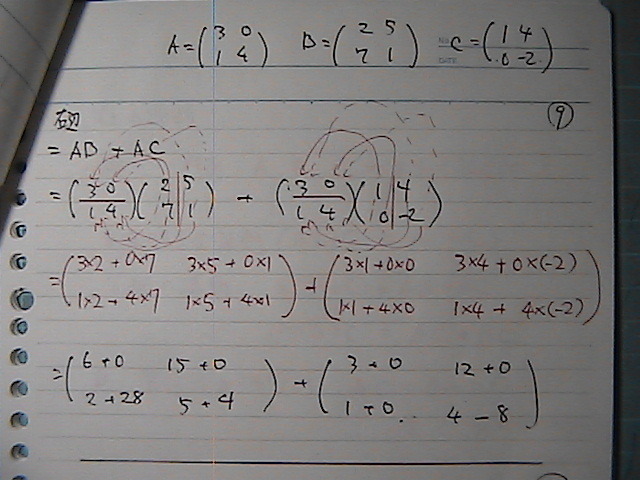 A = (3 0 / 1 4) B = (2 5 / 7 1) C = (1 4 / 0 -2)
⑨
右辺
= AB + AC
= (3 0 / 1 4)(2 5 / 7 1) + (3 0 / 1 4)(1 4 / 0 -2)
= (3×2+0×7 3×5+0×1 / 1×2+4×7 1×5+4×1) + (3×1+0×0 3×4+0×(-2) / 1×1+4×0 1×4+4×(-2))
= (6+0 15+0 / 2+28 5+4) + (3+0 12+0 / 1+0 4-8)